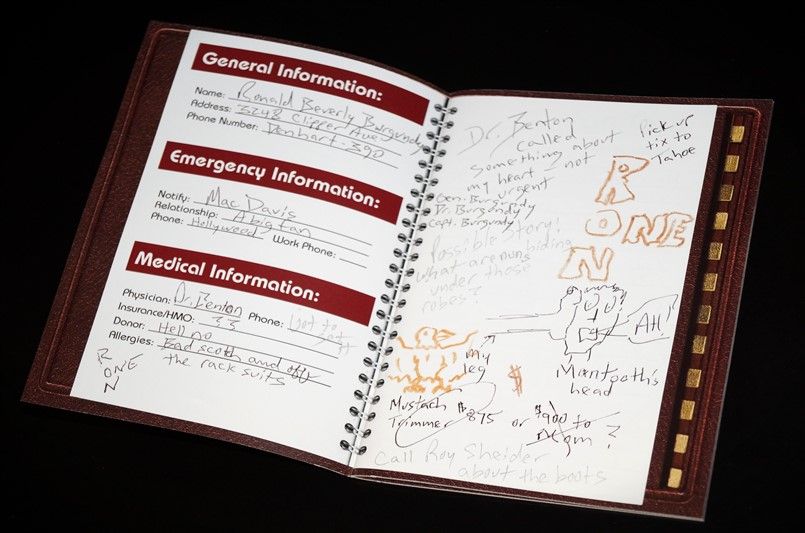 General Information:
Name: Ronald Beverly Burgundy
Address: 3248 Clipper Ave
Phone Number: Denhart-390
Emergency Information:
Notify: Mac Davis
Relationship: A big fan
Phone: Hollyweed Work Phone:
Medical Information:
Physician: Dr. Benton Phone:
Insurance/HMO: 33
Donor: Hell no
Allergies: Bad scotch and off
the rack suits
R
ONE
N
Dr. Benton
called
something about
my heart - not
urgent
Gen. Burgundy
Dr. Burgundy
Capt. Burgundy
Pick up
tix to
Tahoe
R
ONE
N
Possible story:
What are nuns hiding
under those
robes?
AH!
my
leg
$
Mantooth's
head
Mustach
Trimmer $875 or $900 to ?
Call Roy Sheider
about the boots